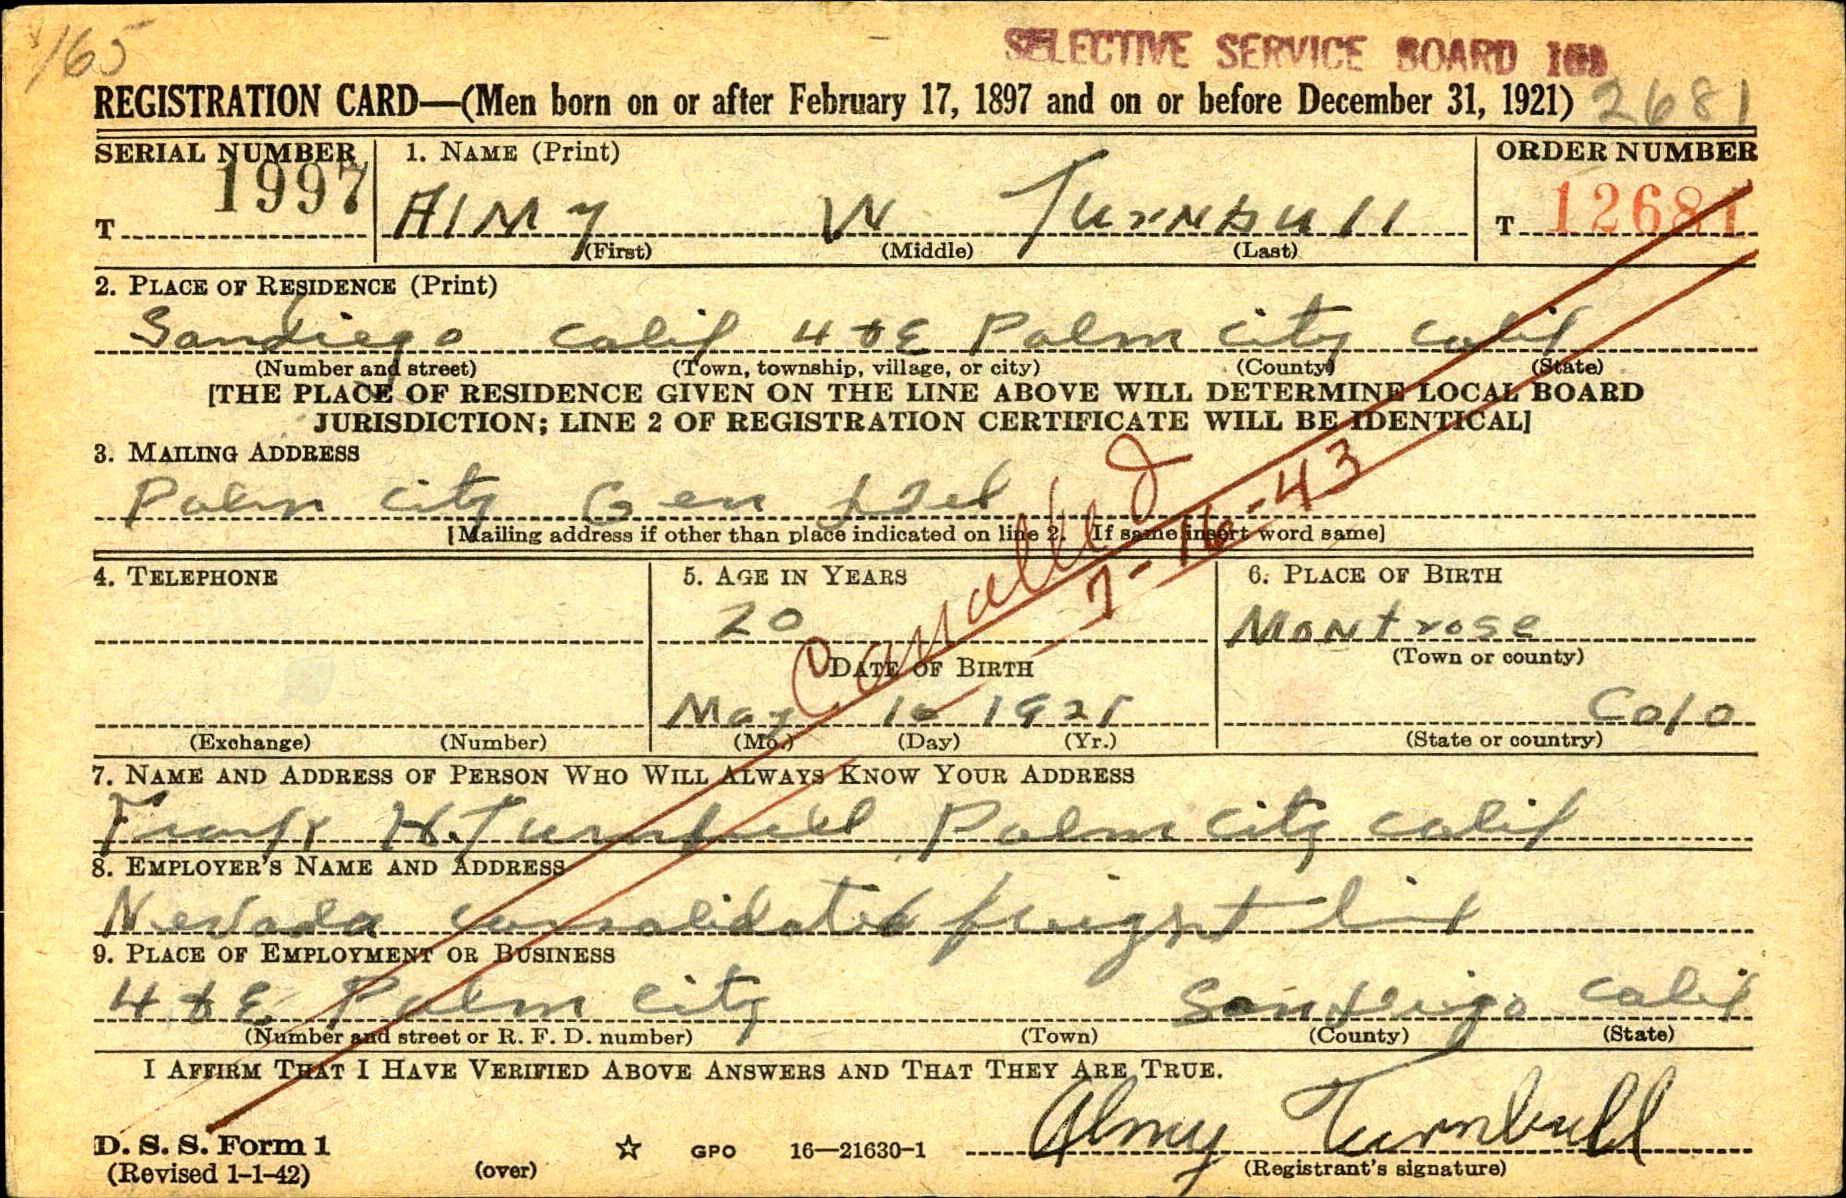 165
SELECTIVE SERVICE BOARD
REGISTRATION CARD—(Men born on or after February 17, 1897 and on or before December 31, 1921) 2681
SERIAL NUMBER 1. NAME (Print) ORDER NUMBER
T 1997 Almy W Turnbull T 12681
(First) (Middle) (Last)
2. PLACE OF RESIDENCE (Print)
Sandiego Calif 4 & E Palm City Calif
(Number and street) (Town, township, village, or city) (County) (State)
[THE PLACE OF RESIDENCE GIVEN ON THE LINE ABOVE WILL DETERMINE LOCAL BOARD
JURISDICTION; LINE 2 OF REGISTRATION CERTIFICATE WILL BE IDENTICAL]
3. MAILING ADDRESS
Palm City Gen Del
[Mailing address if other than place indicated on line 2. If same insert word same]
Cancelled 7-16-43
4. TELEPHONE 5. AGE IN YEARS 6. PLACE OF BIRTH
20 Montrose
DATE OF BIRTH (Town or county)
May 16 1921 Colo
(Exchange) (Number) (Mo.) (Day) (Yr.) (State or country)
7. NAME AND ADDRESS OF PERSON WHO WILL ALWAYS KNOW YOUR ADDRESS
Frank H. Turnbull Palm City Calif
8. EMPLOYER'S NAME AND ADDRESS
Nevada consolidated freight line
9. PLACE OF EMPLOYMENT OR BUSINESS
4 & E Palm City Sandiego Calif
(Number and street or R. F. D. number) (Town) (County) (State)
I AFFIRM THAT I HAVE VERIFIED ABOVE ANSWERS AND THAT THEY ARE TRUE.
Almy Turnbull
D. S. S. Form 1
(Revised 1-1-42) (over) ☆ GPO 16—21630-1 (Registrant's signature)